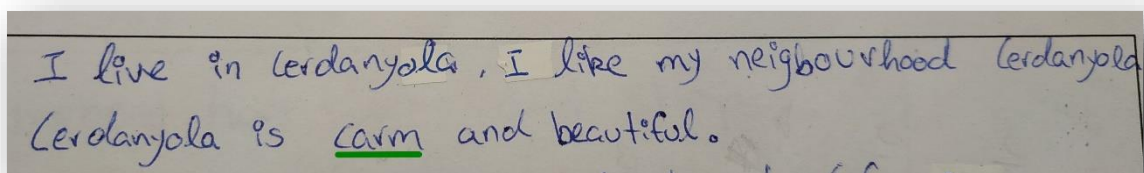 I live in Cerdanyola, I like my neigbourhood Cerdanyola
Cerdanyola is carm and beautiful.